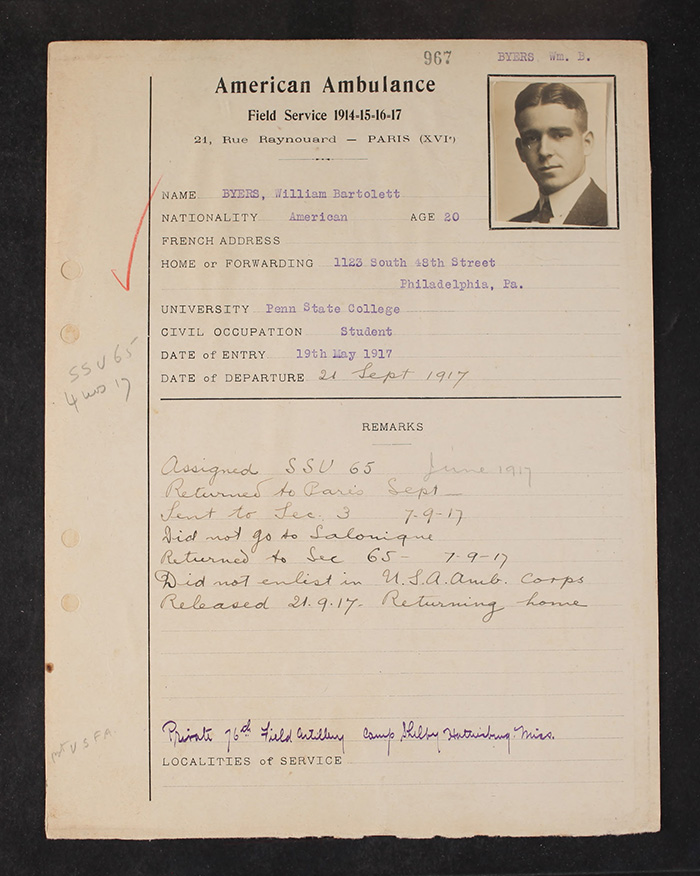 967 BYERS, Wm. B.
American Ambulance
Field Service 1914-15-16-17
21, Rue Raynouard — PARIS (XVIe)
NAME BYERS, William Bartolett
NATIONALITY American AGE 20
FRENCH ADDRESS
HOME or FORWARDING 1123 South 48th Street
Philadelphia, Pa.
UNIVERSITY Penn State College
CIVIL OCCUPATION Student
DATE of ENTRY 19th May 1917
DATE of DEPARTURE 21 Sept 1917
SSU 65
4 17
REMARKS
Assigned SSU 65 June 1917
Returned to Paris Sept —
Sent to Sec. 3 7-9-17
Did not go to Salonique
Returned to Sec 65 - 7-9-17
Did not enlist in U.S.A. Amb. Corps
Released 21.9.17. Returning home
Private 76th Field Artillery Camp Shelby Hattiesburg. Miss.
USFA
LOCALITIES of SERVICE